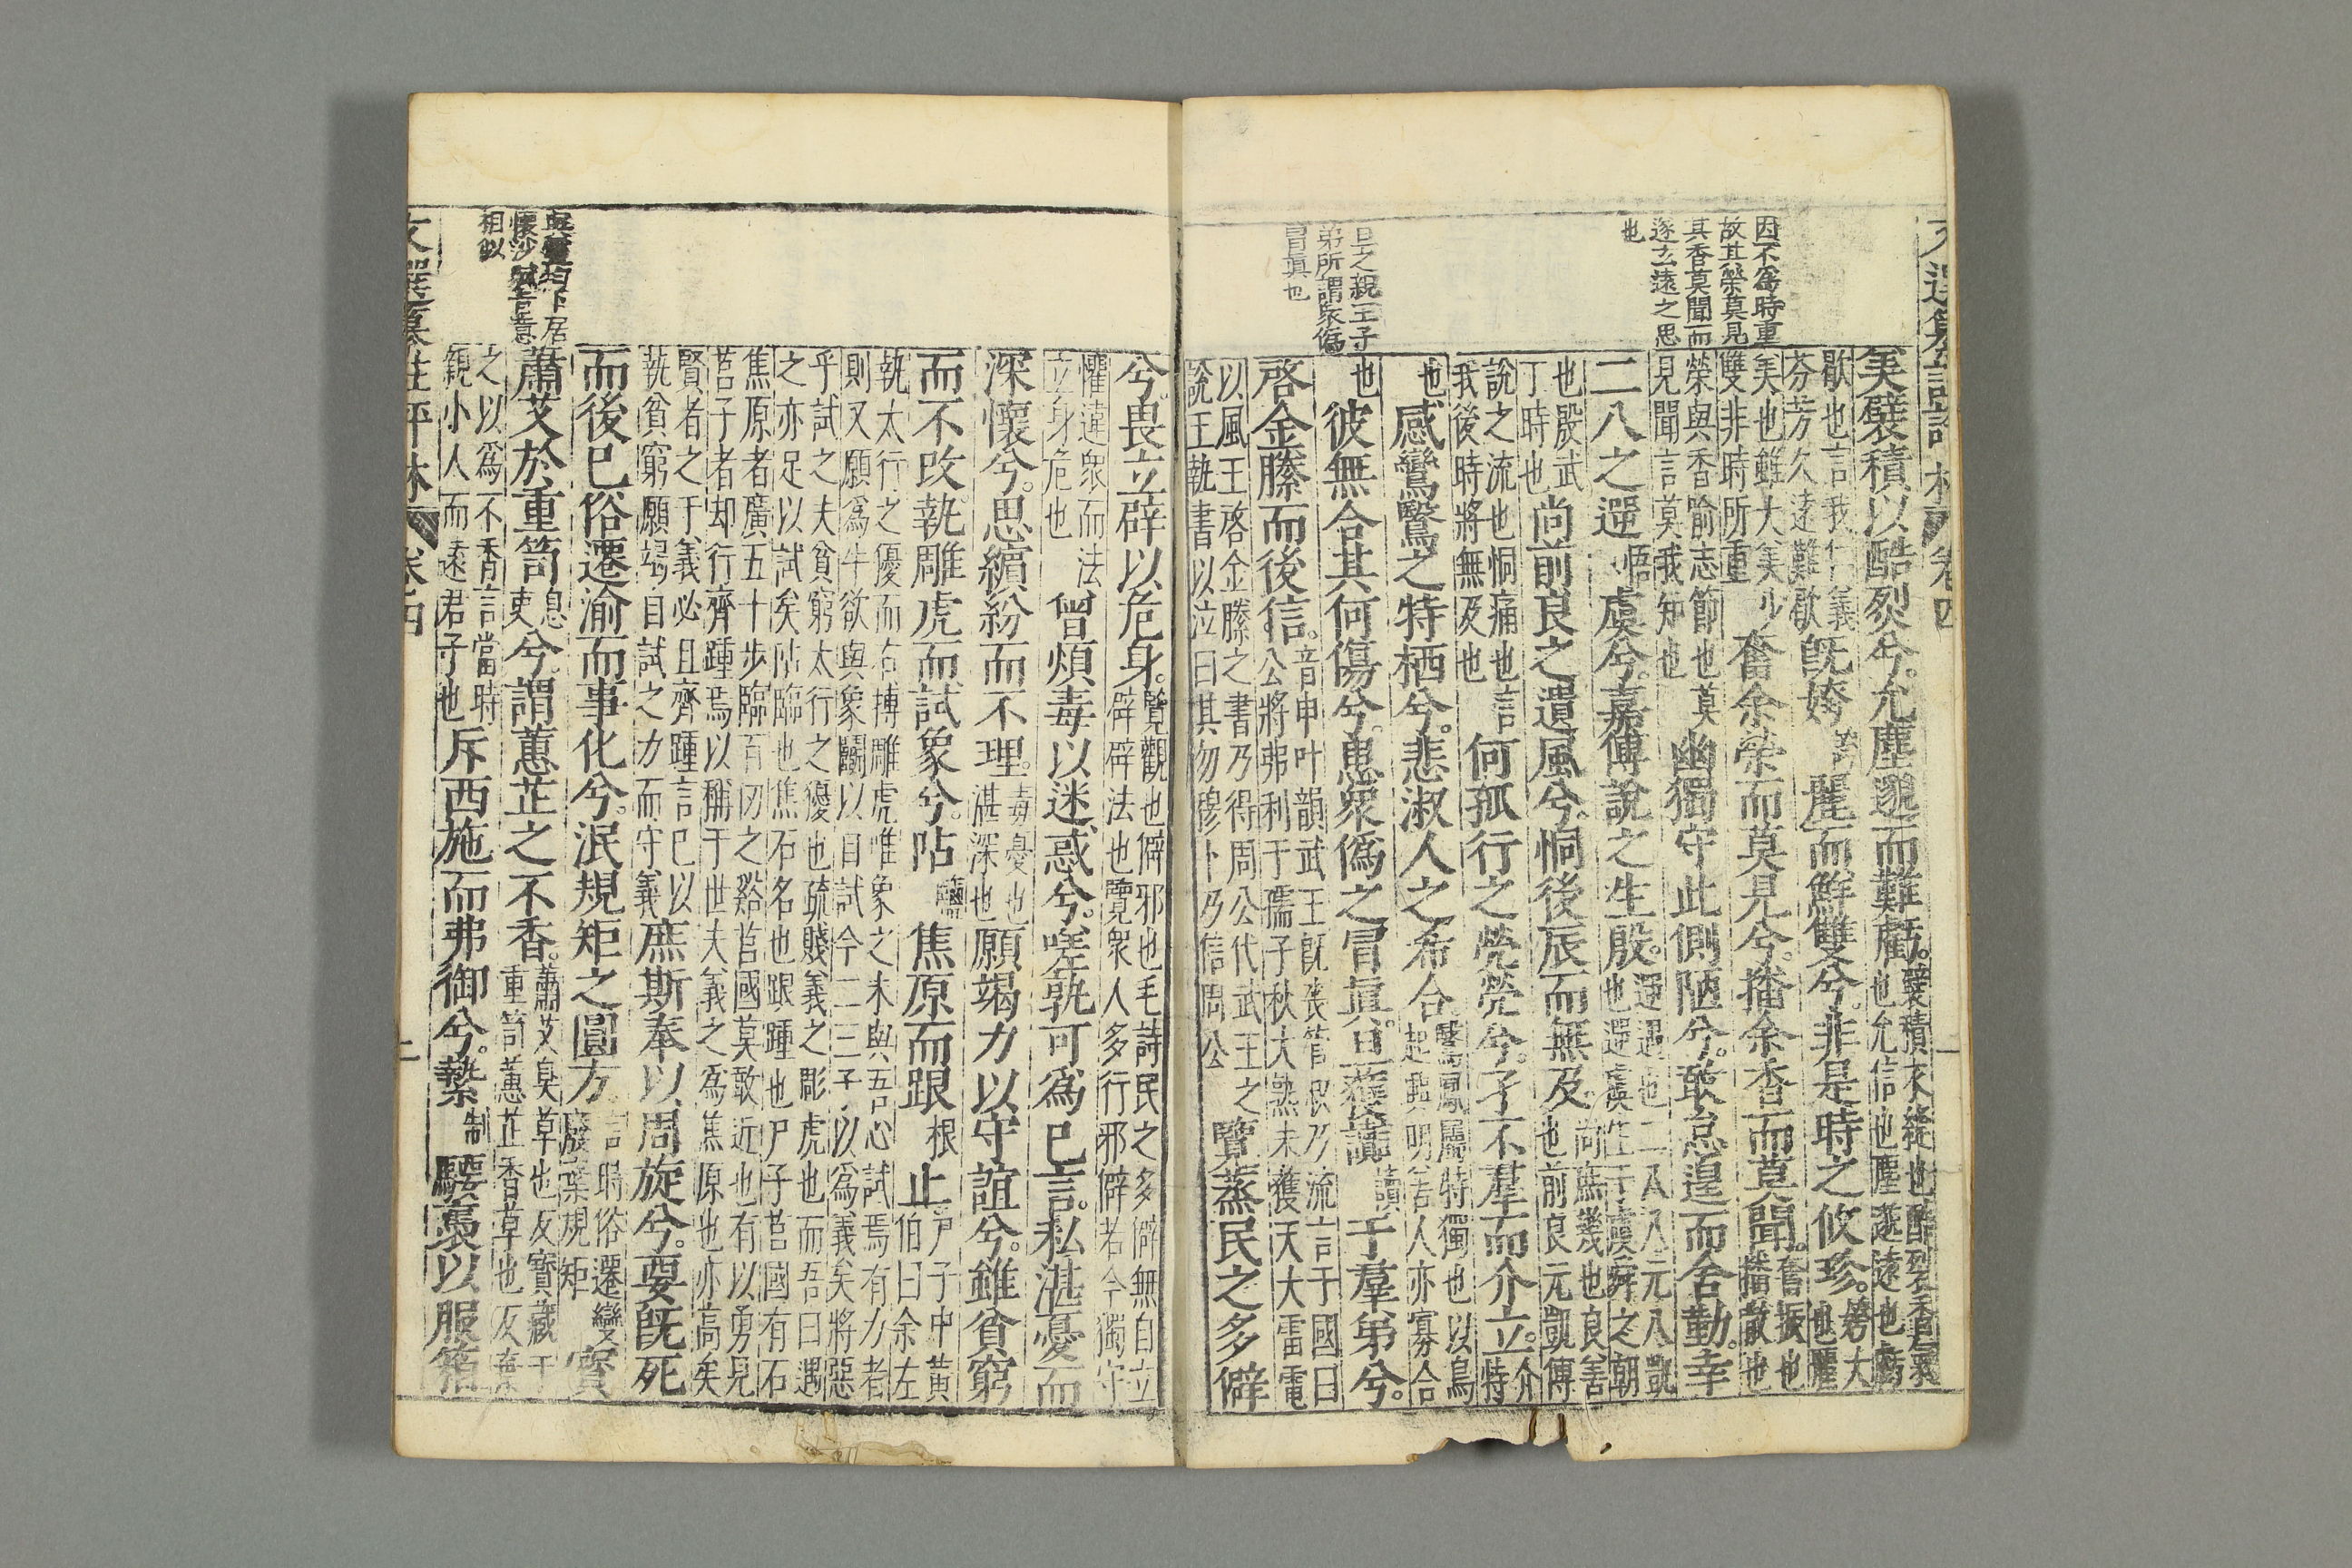 因不爲時重
故其榮莫見
其香莫聞而
遂玄遠之思
也
旦之親王子
弟所謂衆僞
冒真也
美襞積以酷裂兮。允塵邈而難虧。襞積衣縫也酷裂香氣裂
也允信也塵邈遠也虧
歇也言我仁義
芬芳久遠難歇旣姱麗而鮮雙兮。非是時之攸珍。姱大
也麗
美也雖大美少
雙非時所重奮余榮而莫見兮。播余香而莫聞。奮振也
播散也
榮與香喻志節也莫
見聞言莫我知也幽獨守此側陋兮。敢怠遑而舍勤。幸
二八之遌悟虞兮。嘉傅說之生殷。遌遇也二八八元八凱
也遌虞生于虞舜之朝
也殷武
丁時也尚前良之遺風兮。恫後辰而無及。尚庶幾也良善
也前良元凱傅
說之流也恫痛也言
我後時將無及也何孤行之煢煢兮。孑不羣而介立。介
特
也感鸞鷖之特栖兮。悲淑人之希合。鷖鳳屬特獨也以鳥
起興明善人亦寡合
也彼無合其何傷兮。患衆僞之冒眞。旦獲讟讀于羣弟兮。
啓金縢而後信。音申叶韻武王旣喪管叔乃流言于國曰
公將弗利于孺子秋大熟未獲天大雷電
以風王啓金縢之書乃得周公代武王之
說王執書以泣曰其勿穆卜乃信周公覽蒸民之多僻
兮。畏立辟以危身。覽觀也僻邪也毛詩民之多僻無自立
辟辟法也覽衆人多行邪僻若今獨守
懼違衆而法
立身危也曾煩毒以迷惑兮。嗟孰可爲已言。私湛憂而
深懷兮。思繽紛而不理。毒憂也
湛深也願竭力以守誼兮。雖貧窮
而不改。執雕虎而試象兮。阽鹽焦原而跟根止。尸子中黃
伯曰余左
執太行之優而右搏雕虎唯象之未與吾心試焉有力者
則又願爲牛欲與象鬭以自試今二三子以爲義矣將惡
乎試之夫貧窮太行之優也疏賤義之彫虎也而吾曰遇
之亦足以試矣阽臨也焦石名也跟踵也尸子莒國有石
焦原者廣五十步臨百仞之谿莒國莫敢近也有以勇見
莒子者却行齊踵焉以稱于世夫義之爲焦原也亦高矣
賢者之于義必且齊踵言已以
執貧窮願竭自試之力而守義庶斯奉以周旋兮。要旣死
而後已俗遷渝而事化兮。泯規矩之圓方言時俗遷變
廢棄規矩寶
蕭艾於重笥息
吏兮謂蕙芷之不香。蕭艾臭草也反寶藏于
重笥蕙芷香草也反棄
之以爲不香言當時
親小人而遠君子也斥西施而弗御兮。縶制騕褭以服箱
與靈均卜居
懷沙賦旨意
相似
文選纂註評林 卷四